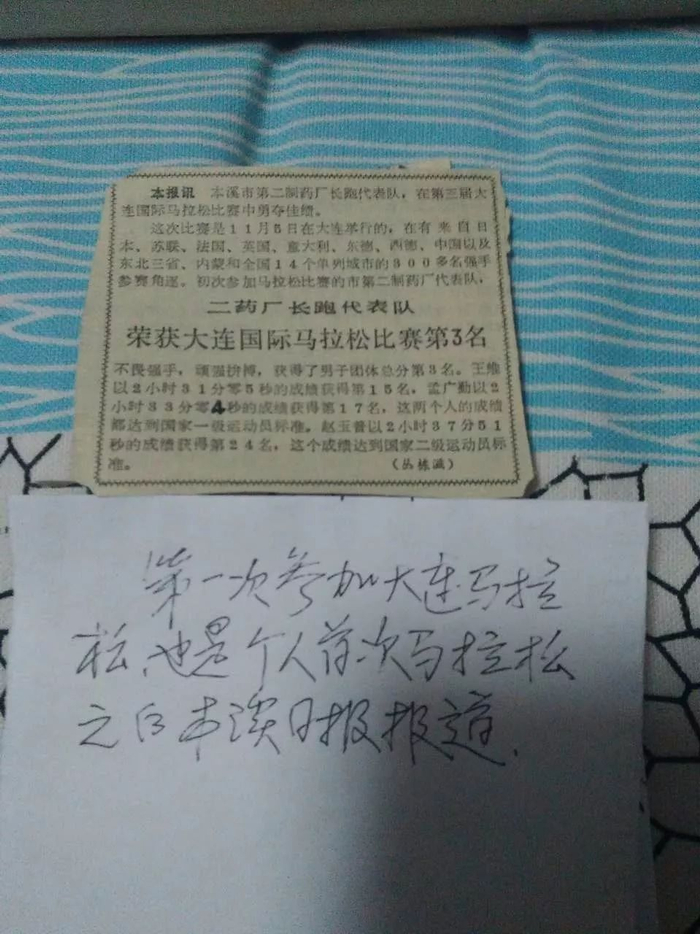 本报讯 本溪市第二制药厂长跑代表队,在第三届大
连国际马拉松比赛中勇夺佳绩。
这次比赛是11月5日在大连举行的,在有来自日
本、苏联、法国、英国、意大利、东德、西德、中国以及
东北三省、内蒙和全国14个单列城市的300多名强手
参赛角逐。初次参加马拉松比赛的市第二制药厂代表队,
二药厂长跑代表队
荣获大连国际马拉松比赛第3名
不畏强手,顽强拚搏,获得了男子团体总分第3名。王维
以2小时31分零5秒的成绩获得第15名,孟广勤以2
小时33分零4秒的成绩获得第17名,这两个人的成绩
都达到国家一级运动员标准。赵玉普以2小时37分51
秒的成绩获得第24名,这个成绩达到国家二级运动员标
准。 (丛栋滋)
第一次参加大连马拉
松、也是个人首次马拉松
之后本溪日报报道.